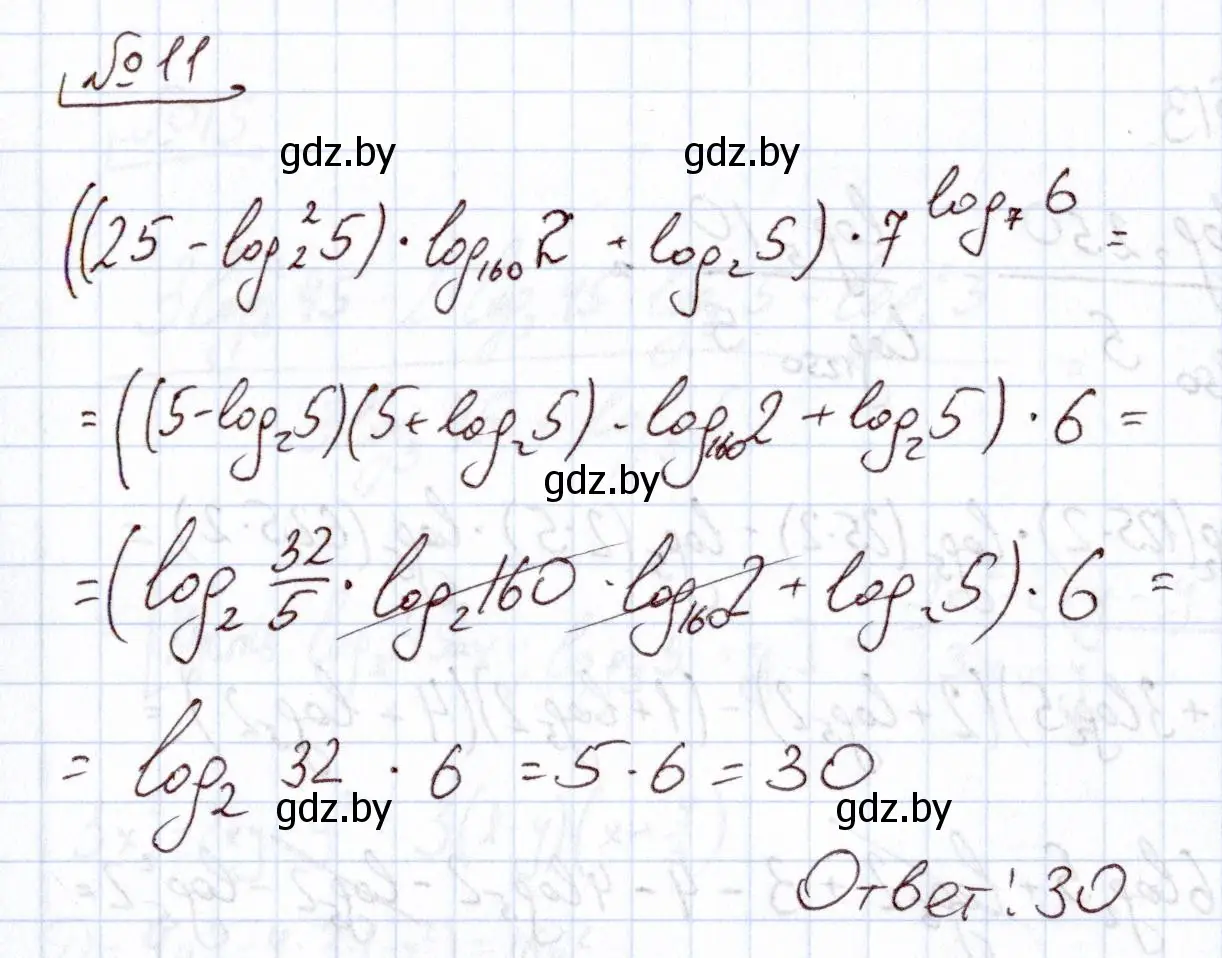 № 11
gdz.by gdz.by
((25 - log₂²5) · log₁₆₀2 + log₂5) · 7^log₇6 =
= ((5 - log₂5)(5 + log₂5) · log₁₆₀2 + log₂5) · 6 =
gdz.by
= (log₂ 32/5 · log₂160 · log₁₆₀2 + log₂5) · 6 =
= log₂ 32 · 6 = 5 · 6 = 30
gdz.by gdz.by
Ответ: 30